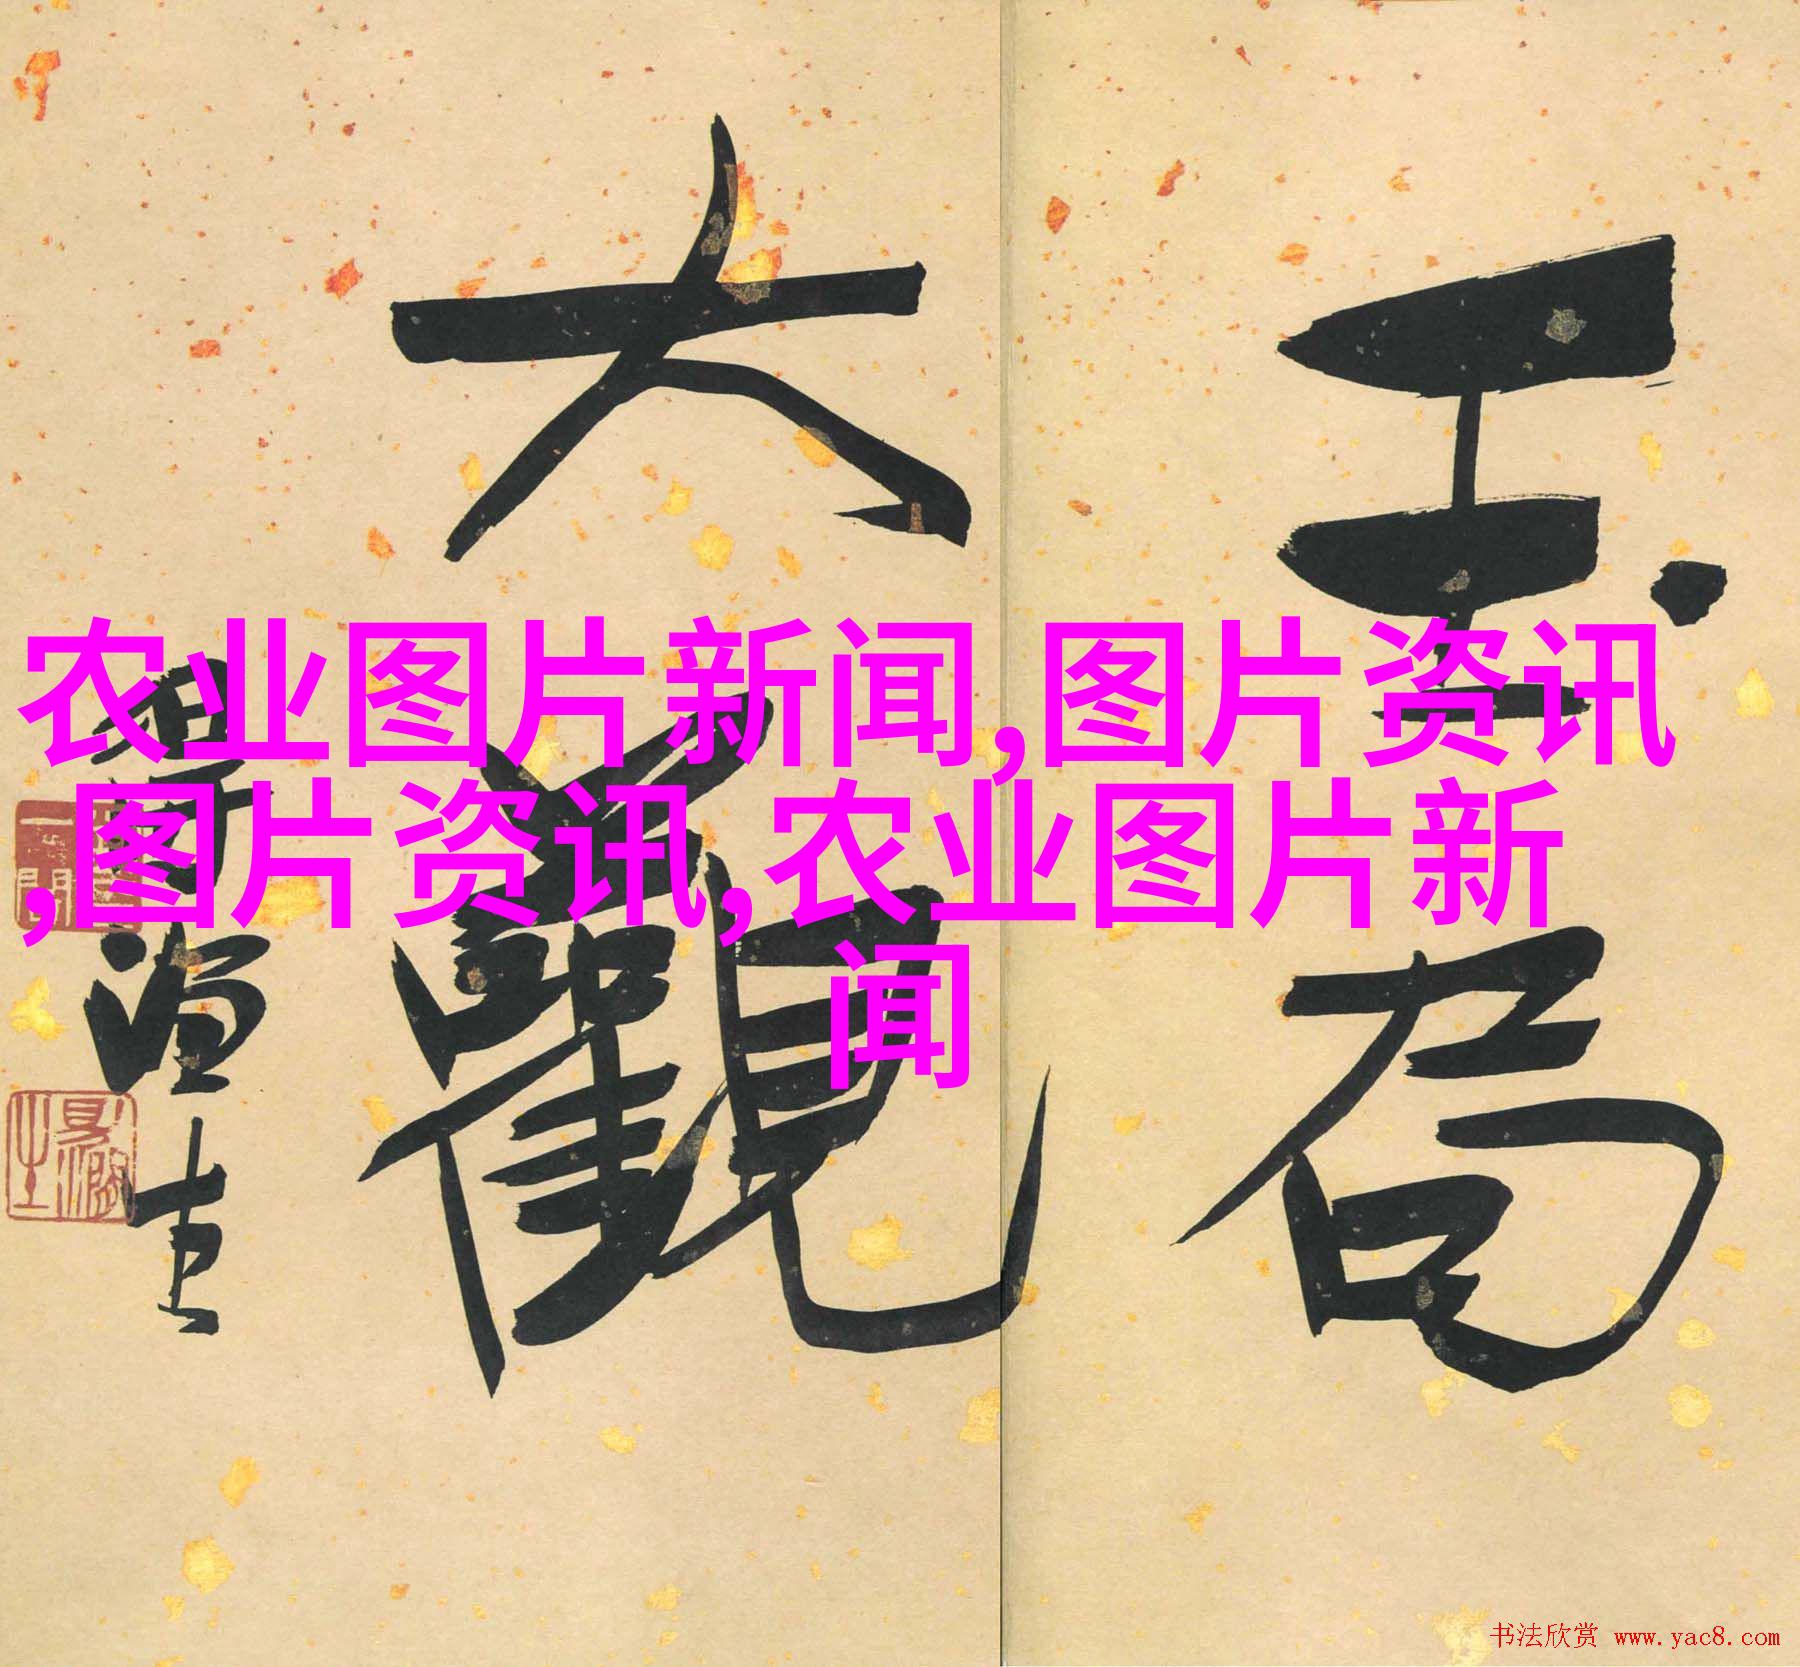 玉局
大觀
农业图片新闻,图片资讯
,图片资讯,农业图片新
闻
书法欣赏 www.yac8.com